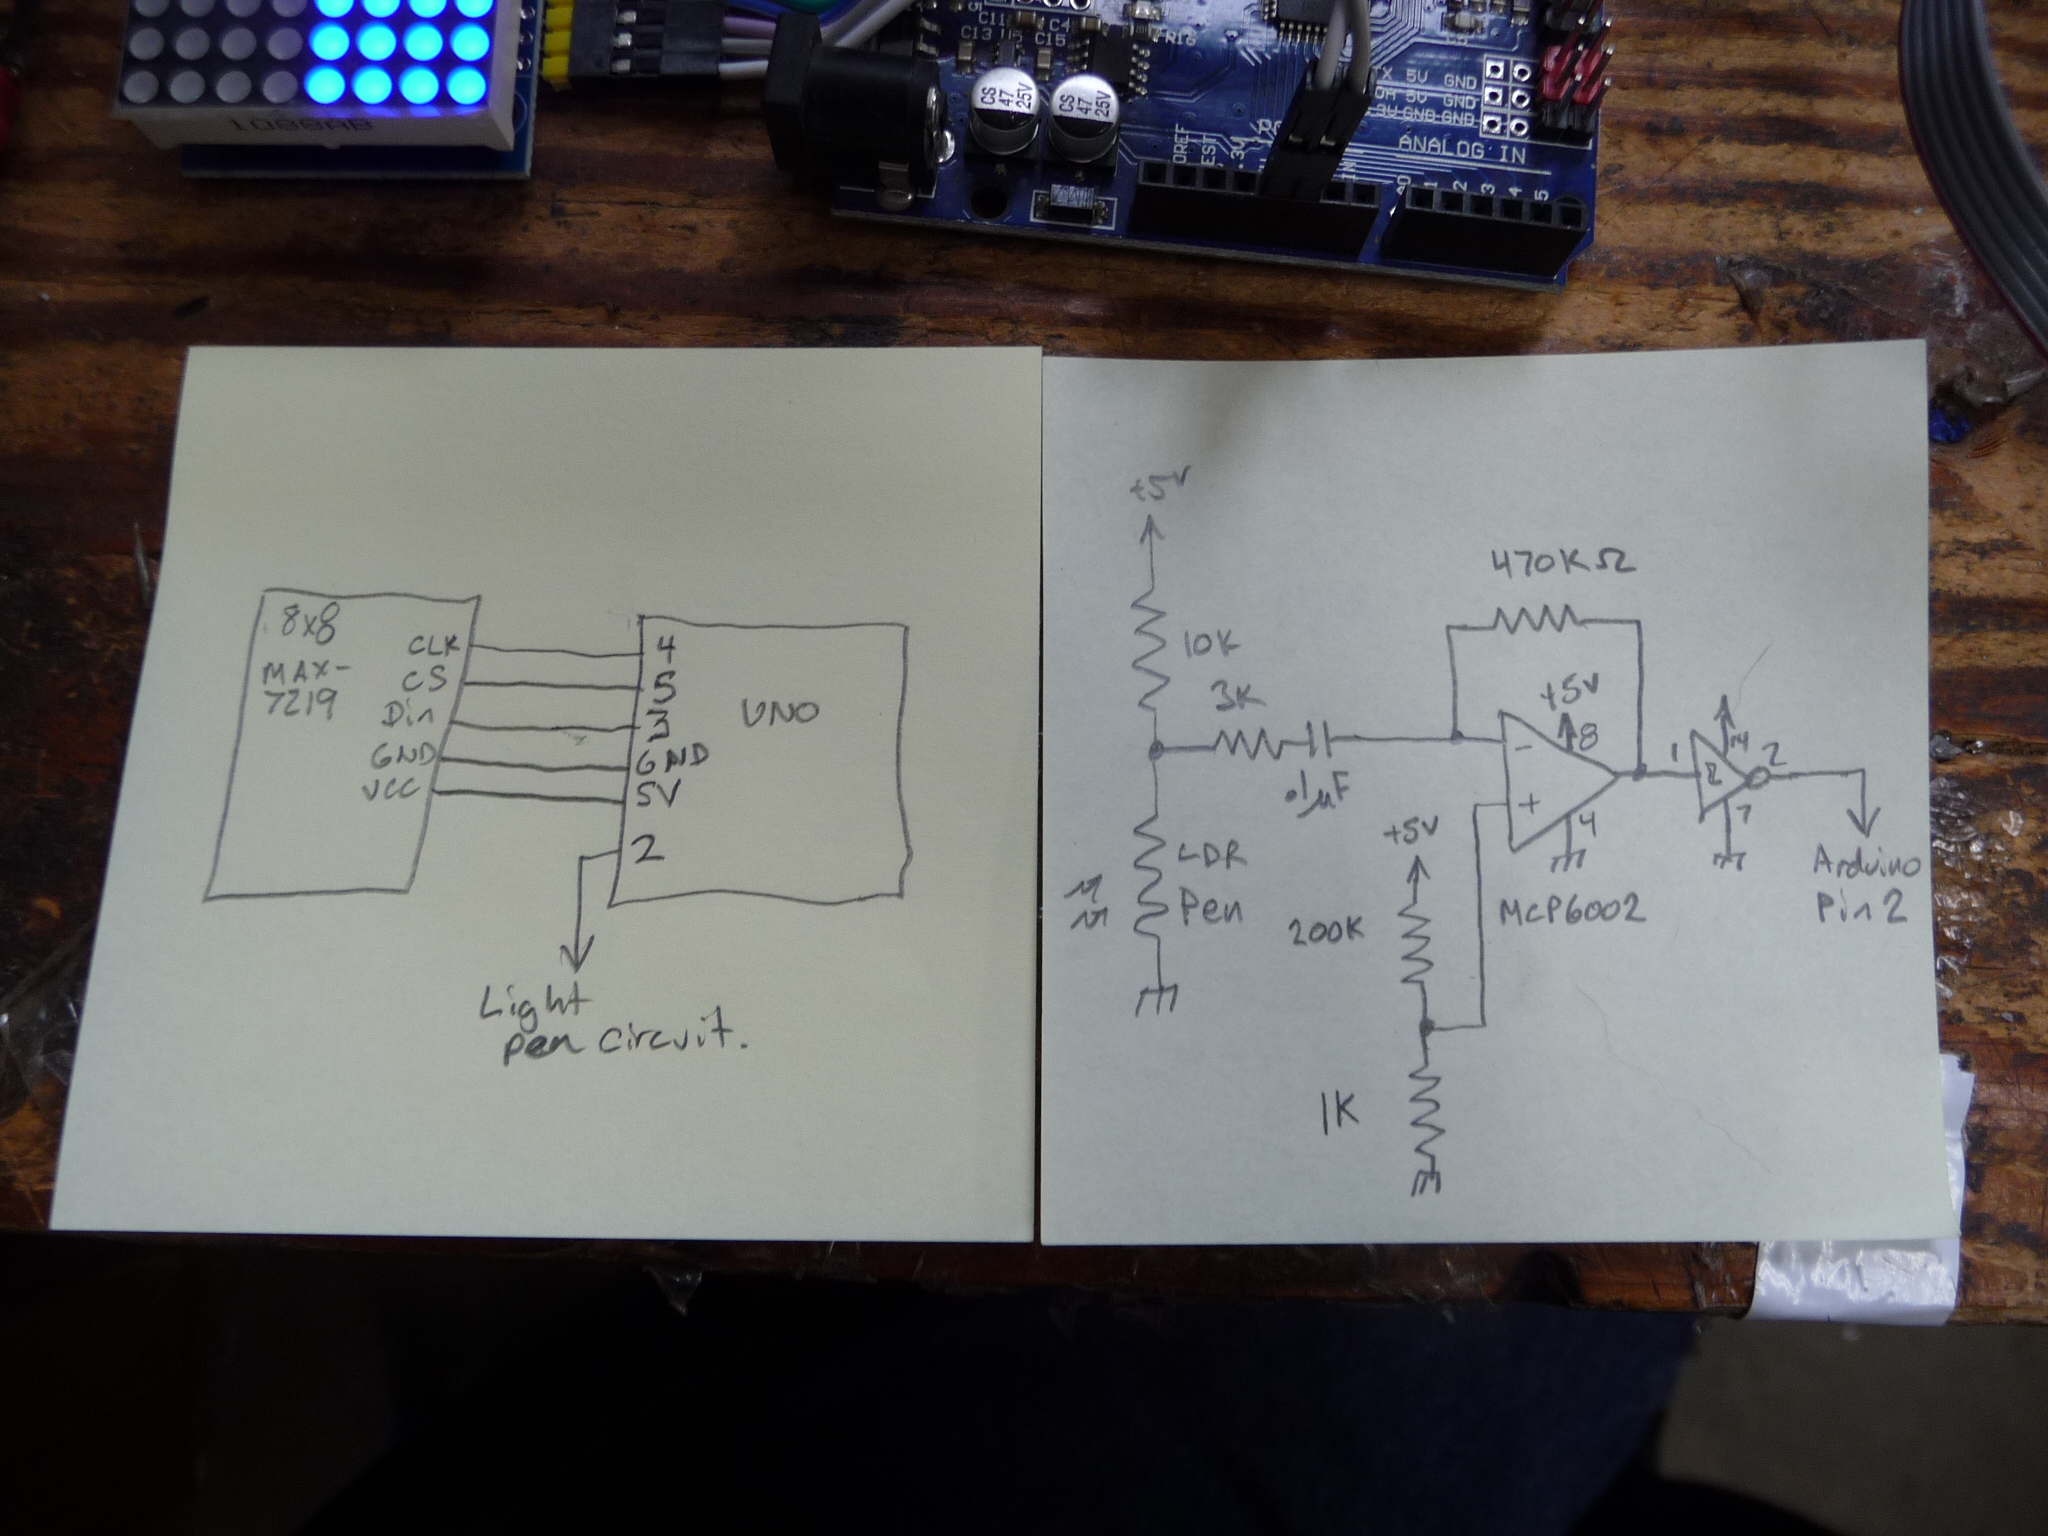 1088AB
C11
C4
C13
C15
R16
CS
47
25V
CS
47
25V
5V GND
5V GND
GND GND
ANALOG IN
1 2 3 4 5
8x8
MAX-
7219
CLK
CS
Din
GND
VCC
4
5
3
GND
5V
2
UNO
Light
pen circuit.
+5V
10K
3K
.1µF
LDR
Pen
470KΩ
+5V
8
-
+
4
MCP6002
+5V
200K
1K
1
14
2
7
Arduino
Pin 2